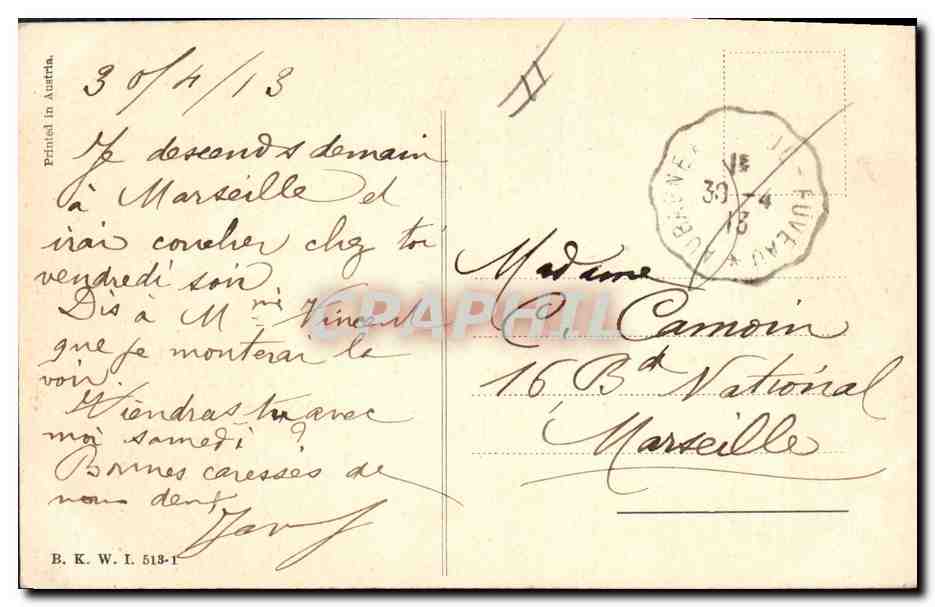 Printed in Austria.
30/4/13
Je descends demain
à Marseille et
irai coucher chez toi
vendredi soir
Dis à Mme Vincent
que je monterai la
voir.
Viendras tu avec
moi samedi ?
Bonnes caresses de
nous deux
B. K. W. I. 513-1
AUBAGNE - FUVEAU *
30 - 4
13
Madame
C. Camoin
16, Bd National
Marseille
CPAPHIL